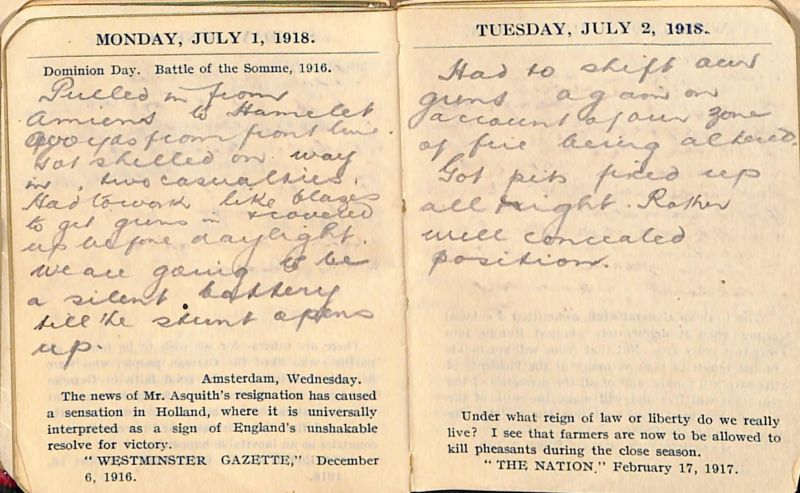 MONDAY, JULY 1, 1918.
Dominion Day. Battle of the Somme, 1916.
Pulled in from
Amiens to Hamelet
yds from front line.
Got shelled on way
in, two casualties.
Had to work like blazes
to get guns in & covered
up before daylight.
We are going to be
a silent battery
till the stunt opens
up.
Amsterdam, Wednesday.
The news of Mr. Asquith's resignation has caused
a sensation in Holland, where it is universally
interpreted as a sign of England's unshakable
resolve for victory.
"WESTMINSTER GAZETTE," December
6, 1916.
TUESDAY, JULY 2, 1918.
Had to shift our
guns again on
account of our zone
of fire being altered.
Got pits fixed up
all right. Rather
well concealed
position.
Under what reign of law or liberty do we really
live? I see that farmers are now to be allowed to
kill pheasants during the close season.
"THE NATION," February 17, 1917.